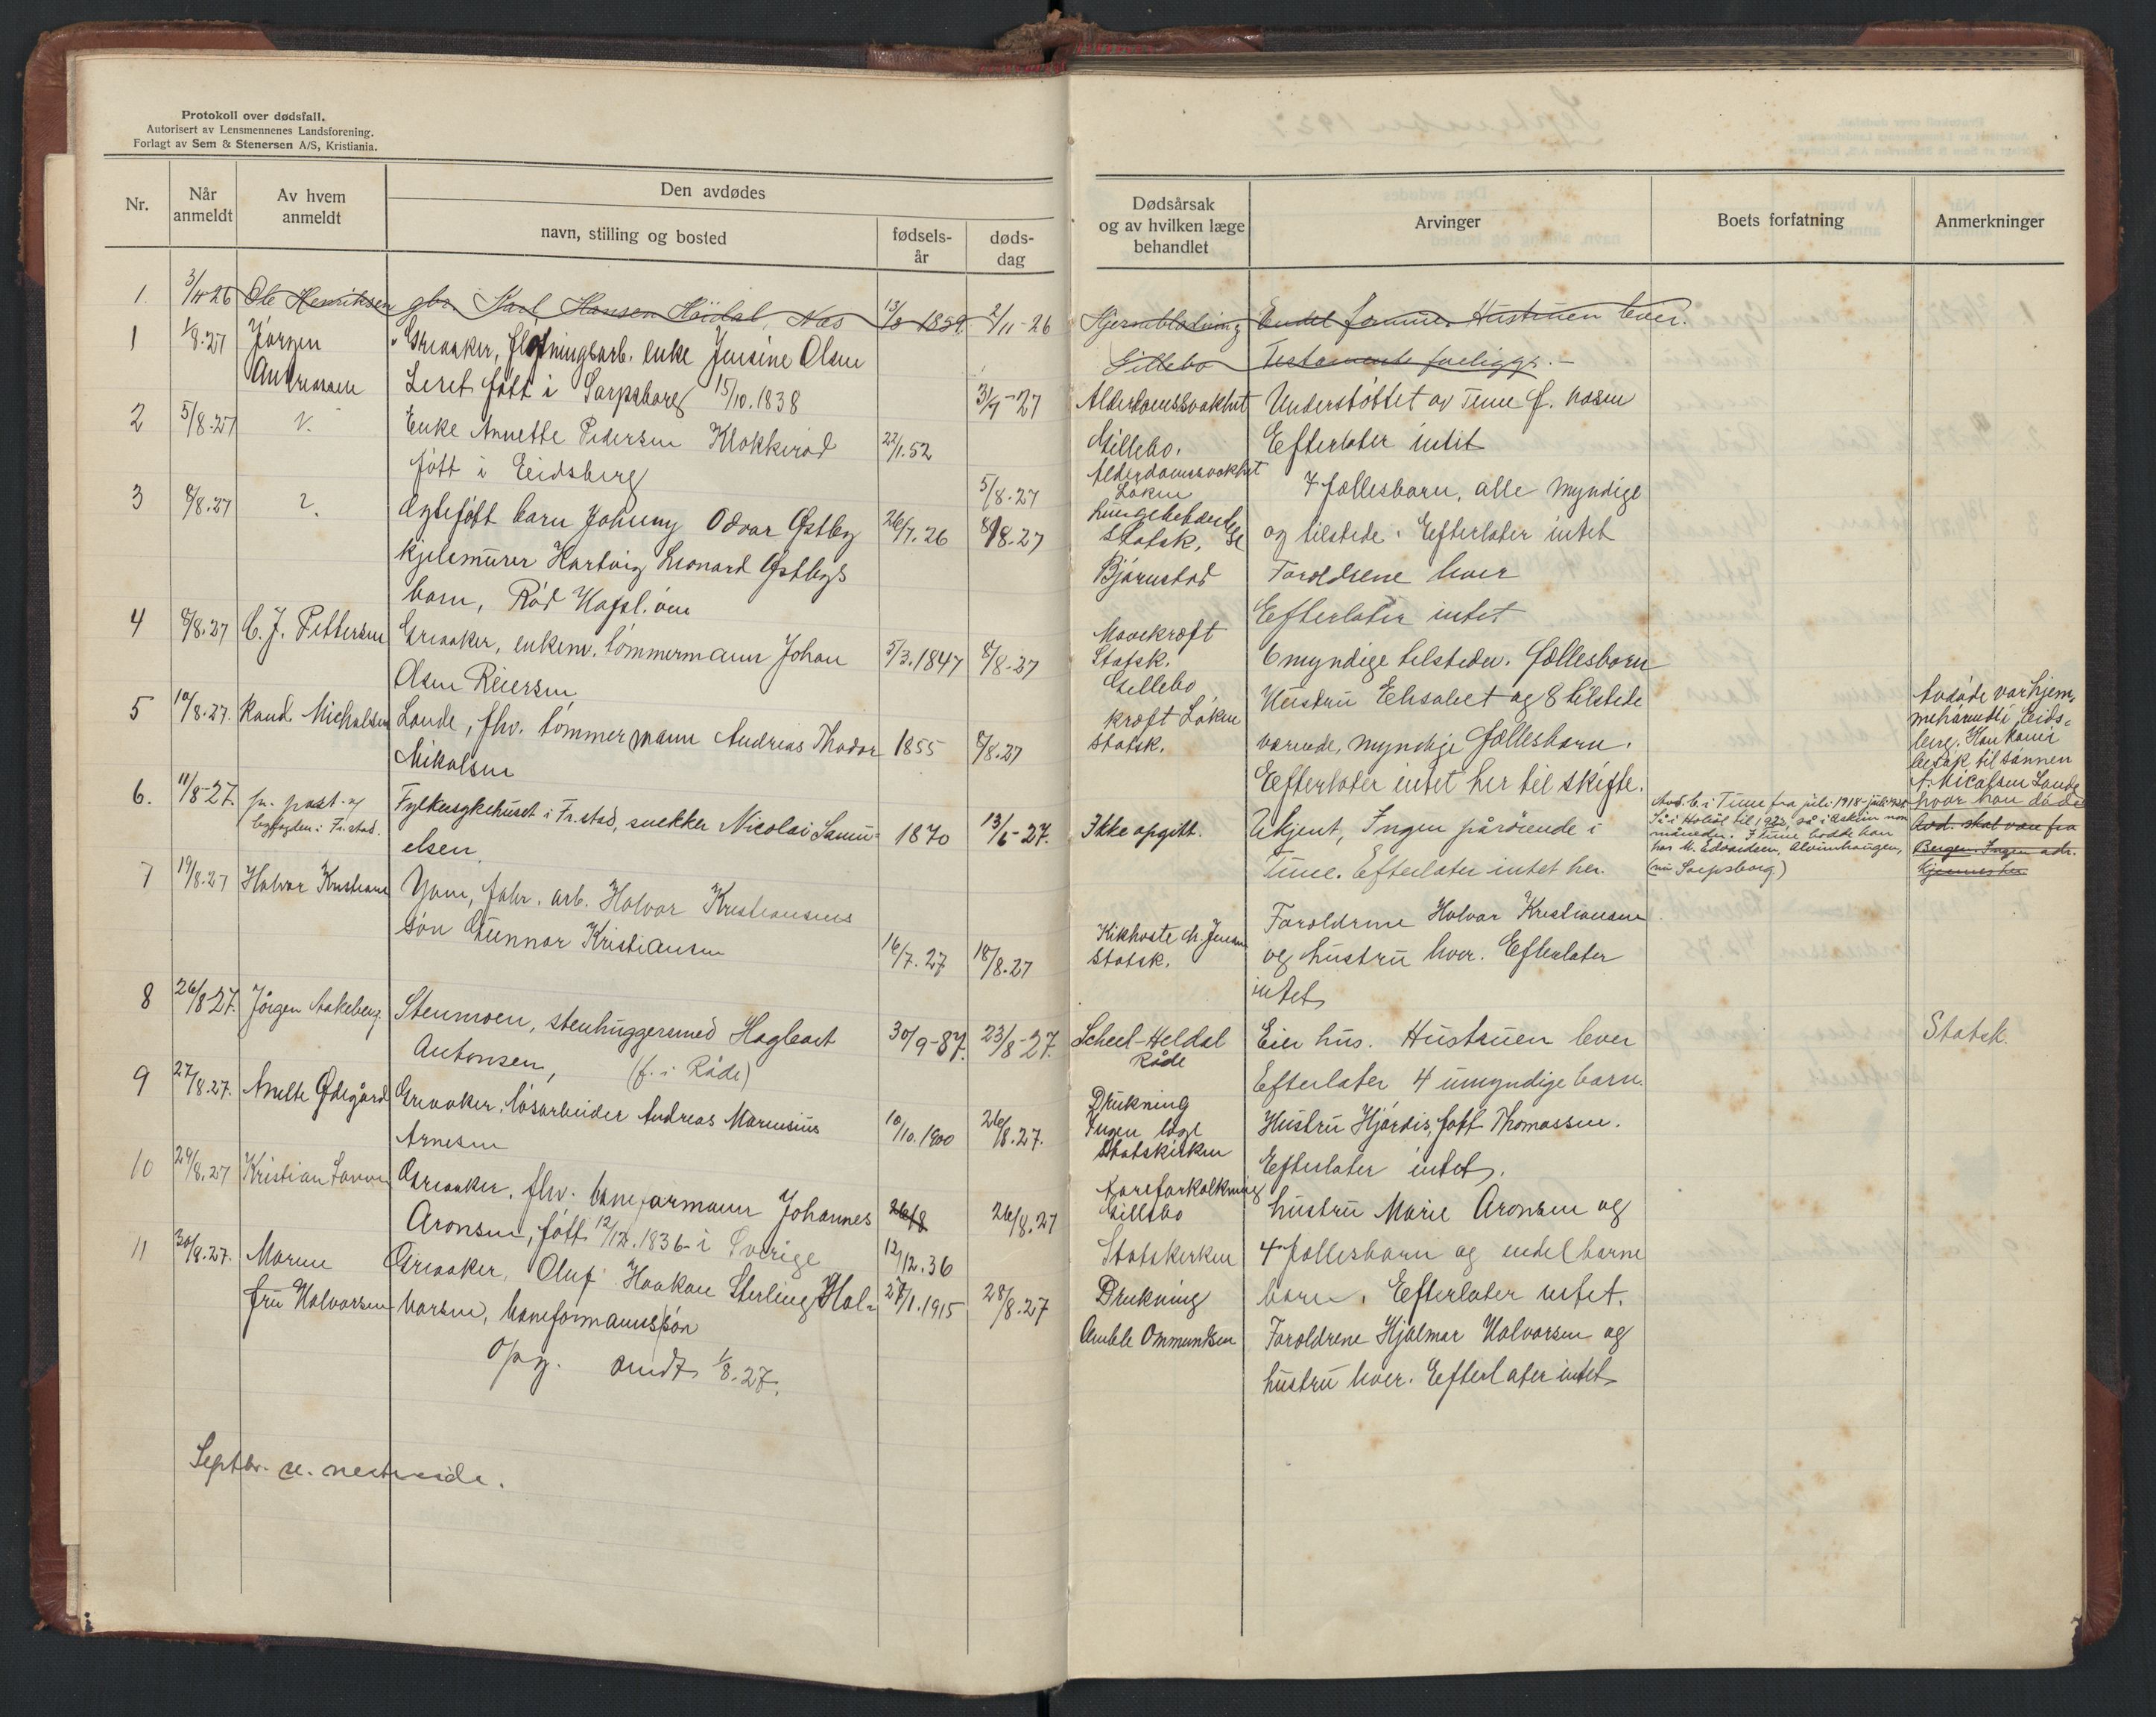 Protokoll over dødsfall.
Autorisert av Lensmennenes Landsforening.
Forlagt av Sem & Stenersen A/S, Kristiania.
Nr.
Når anmeldt
Av hvem anmeldt
Den avdødes
navn, stilling og bosted
fødsels-år
døds-dag
Dødsårsak og av hvilken læge behandlet
Arvinger
Boets forfatning
Anmerkninger
1. 3/11 26 Ole Henriksen gbr. Karl Hansen Höidal, Næs 13/8 1859. 2/11-26 Hjerneblødning Endel formue. Hustruen lever.
Gillebo Testamente foreligger.-
1 1/8.27 Jørgen Greaaker, fløtningsarb. enke Jensine Olsen
Andreassen Leret født i Sarpsborg 15/10.1838 31/7-27 Alderdomssvakhet Understöttet av Tune f. kasse
Gillebo. Efterlater intet
2 5/8.27 Enke Annette Pedersen Klokkerød 22/1.52
født i Eidsberg 5/8.27 Alderdomssvakhet
Løken 7 fællesbarn, alle myndige
og tilstede. Efterlater intet
3 8/8.27 Ægtefødt barn Johnny Odvar Østby 26/7.26 8/8.27 Lungebetændelse
Statsk.
kjelemurer Hartvig Leonard Østbys Bjørnstad Foreldrene lever
barn, Rød Hafsl. Efterlater intet
4 9/8.27 C. J. Pettersen Greaaker, enkem. tømmermann Johan 5/3.1847 8/8.27 Mavekræft
Statsk. 6 myndige tilstede. fællesbarn
Olsen Reiersen Gillebo
5 10/8.27. Rand. Michalsen Lande, fhv. tømmermann Andreas Thodor 1855 9/8.27 kræft Løken
Statsk. Hustru Elisabet og 8 tilstede
Mikalsen værende, myndige fællesbarn.
Efterlater intet her til skifte.
Avdøde var hjem-
mehørende i Eids-
berg. Han kom i
besøk til sønnen
A. Micalsen Lande
hvor han døde
6. 11/8-27. fr. post og
byfogden i Fr.stad. Fylkesykehuset i Fr.stad, snekker Nicolai Samu- 1870 13/6-27. Ikke opgitt. Ukjent, Ingen pårørende i
elsen. Tune. Efterlater intet her.
Avd. b. i Tune fra juli 1918-juli
Så i Hobøl til 1923, så i Askim non
måneder. I Tune bodde han
hos M. Edvardsen, Alvimhaugen,
(nu Sarpsborg)
Avd. skal være fra
Bergen. Ingen adr.
7 19/8.27 Halvor Kristians Yven, fabr. arb. Halvor Kristiansens Foreldrene Halvor Kristiansen
søn Gunnar Kristiansen 16/7.27 18/8.27 Kikhoste ch. Jensen
Statsk. og hustru lever. Efterlater
intet
8 26/8 27. Jørgen Aakeberg. Stenmoen, stenhuggersmed Hagbart 30/9-87. 23/8-27. Scheel-Heldal
Råde Eier hus. Hustruen lever Statsk.
Antonsen, (f. i Råde) Efterlater 4 umyndige barn.
9 27/8.27. Anette Ødegård Greaaker. løsarbeider Andreas Marensius 10/10.1900 26/8.27. Drukning
Ingen læge
Statskirken Hustru Hjørdis, født Thomassen.
Arnesen Efterlater intet.
10 29/8.27 Kristian Greaaker. fhv. baneformann Johannes 26/8 26/8.27 Åreforkalkning
Gillebo hustru Marie Aronsen og
Aronsen, født 12/12.1836 i Sverige 12/12.36 Statskerken 4 fællesbarn og endel barne
barn. Efterlater intet.
11 30/8.27. Maren Greaaker, Oluf Haakon Sterling Hal- 27/1.1915 28/8.27 Drukning
fru Halvorsen vorsen, baneformannssøn Amble Ommundsen Foreldrene Hjalmar Halvorsen og
hustru lever. Efterlater intet
Opg. sendt 1/8.27.
Septbr. se neste side.